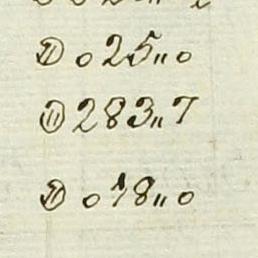 Ⓓ 025"0
Ⓓ 283"7
Ⓓ 018"0